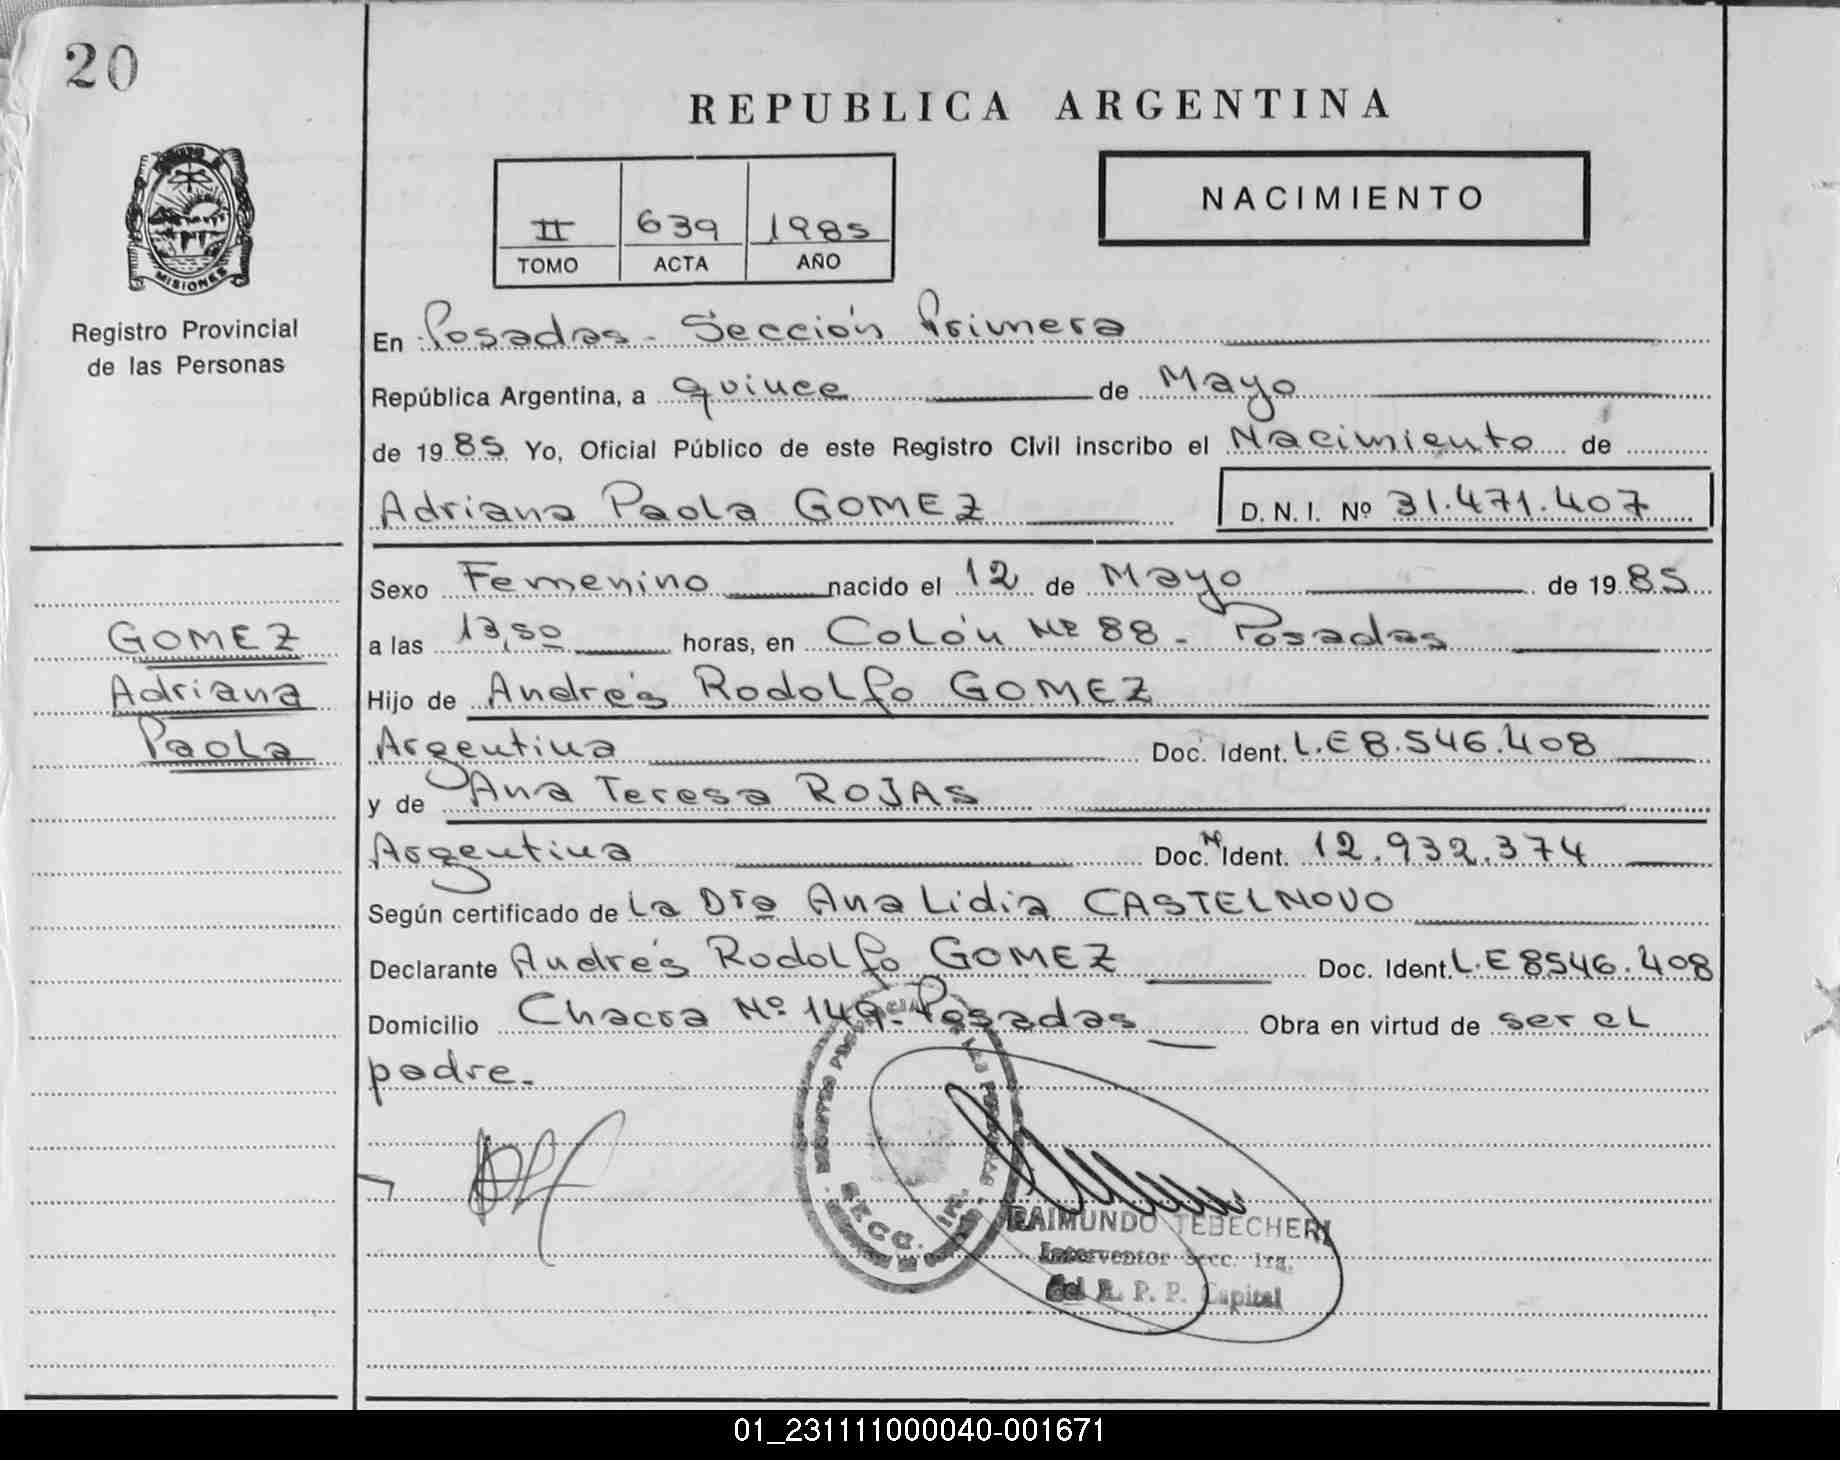 20
REPUBLICA ARGENTINA
NACIMIENTO
II 639 1985
TOMO ACTA AÑO
MISIONES
Registro Provincial
de las Personas
En Posadas - Sección Primera
República Argentina, a quince de Mayo
de 1985 Yo, Oficial Público de este Registro Civil inscribo el Nacimiento de
Adriana Paola GOMEZ D. N. I. Nº 31.471.407
Sexo Femenino nacido el 12 de Mayo de 1985
GOMEZ
Adriana
Paola
a las 13,50 horas, en Colón Nº 88 - Posadas
Hijo de Andrés Rodolfo GOMEZ
Argentina Doc. Ident. L.E 8.546.408
y de Ana Teresa ROJAS
Argentina Doc. N Ident. 12.932.374
Según certificado de La Dra Ana Lidia CASTELNOVO
Declarante Andrés Rodolfo GOMEZ Doc. Ident. L.E 8546.408
Domicilio Chacra Nº 149 - Posadas Obra en virtud de ser el
padre.
SECC. 1ra.
RAIMUNDO TEBECHERI
Interventor Secc. 1ra.
del R. P. P. Capital
01_231111000040-001671